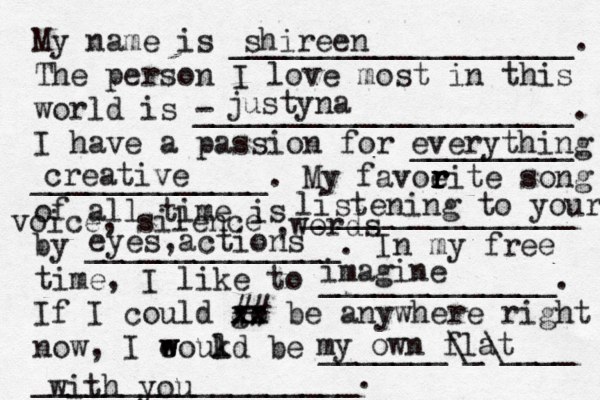 My name is shireen.
The person I love most in this
world is - justyna.
I have a passion for everything
creative. My favorite song
of all time is listening to your
voice, silence, words
by eyes, actions. In my free
time, I like to imagine.
If I could ## be anywhere right
now, I would be my own flat
with you.